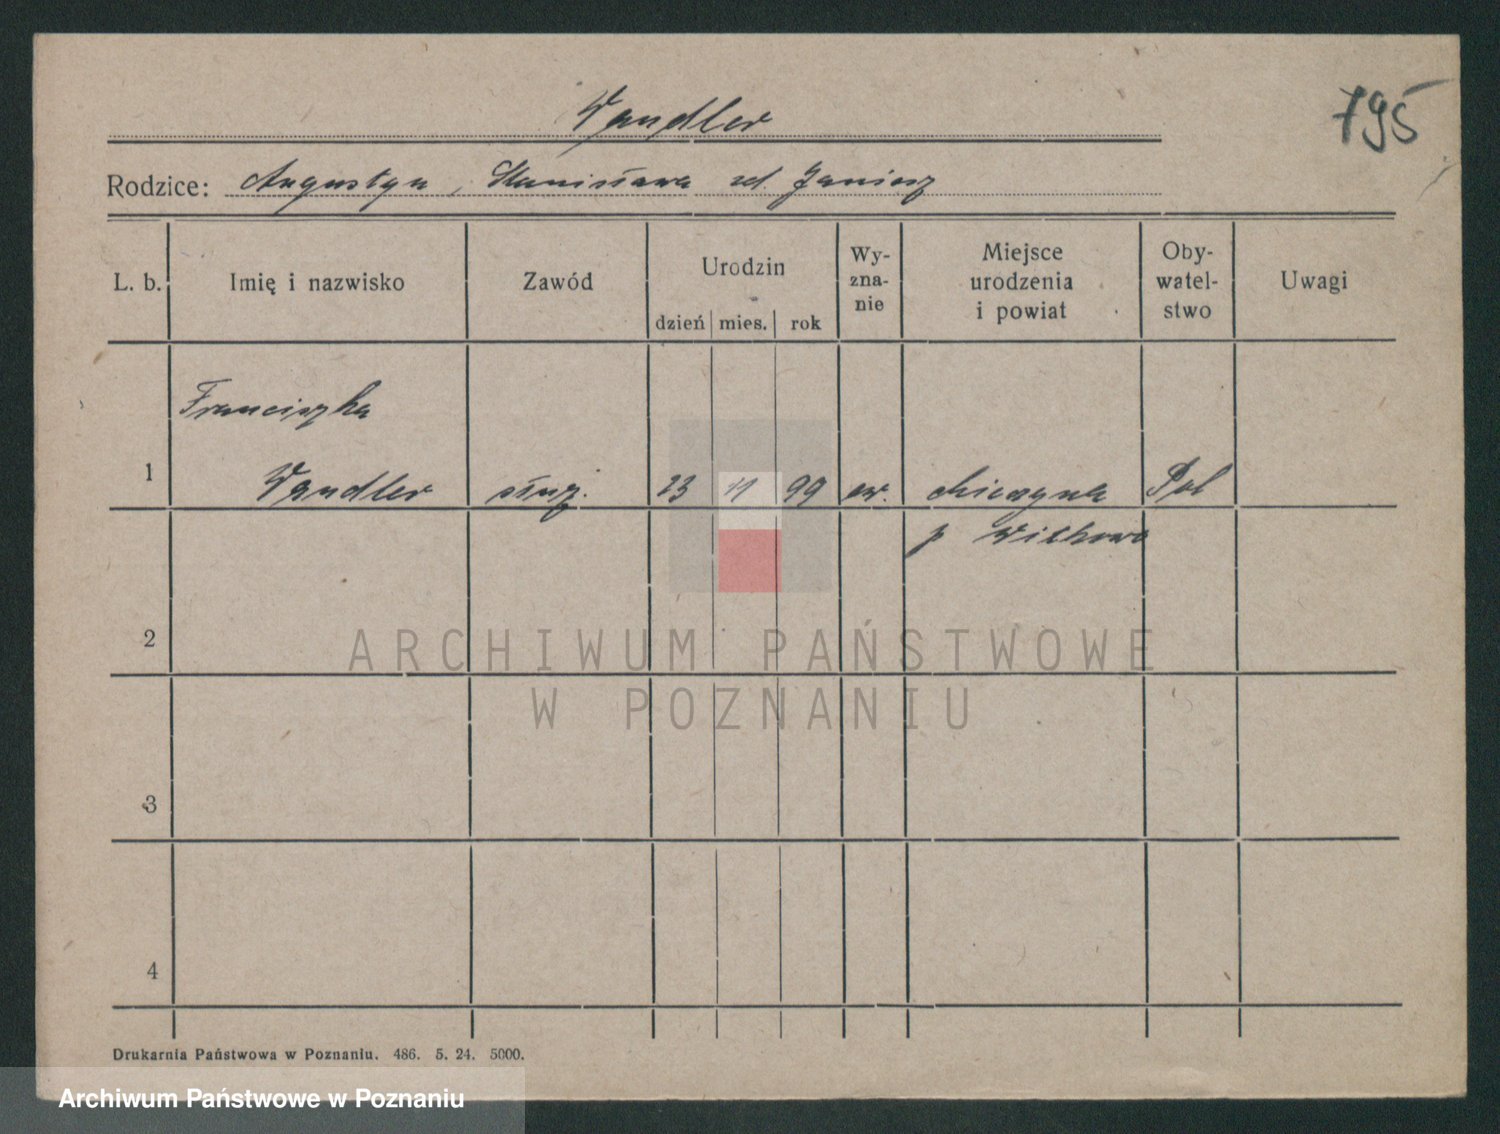 Wandler
795
Rodzice: Augustyn, Stanisława zd. Janiesz
L. b. Imię i nazwisko Zawód Urodzin Wyznanie Miejsce urodzenia i powiat Obywatelstwo Uwagi
dzień mies. rok
Franciszka
1 Wandler służ. 23 11 99 ew. Pol
p
2
3
4
ARCHIWUM PAŃSTWOWE
W POZNANIU
Drukarnia Państwowa w Poznaniu. 486. 5. 24. 5000.
Archiwum Państwowe w Poznaniu